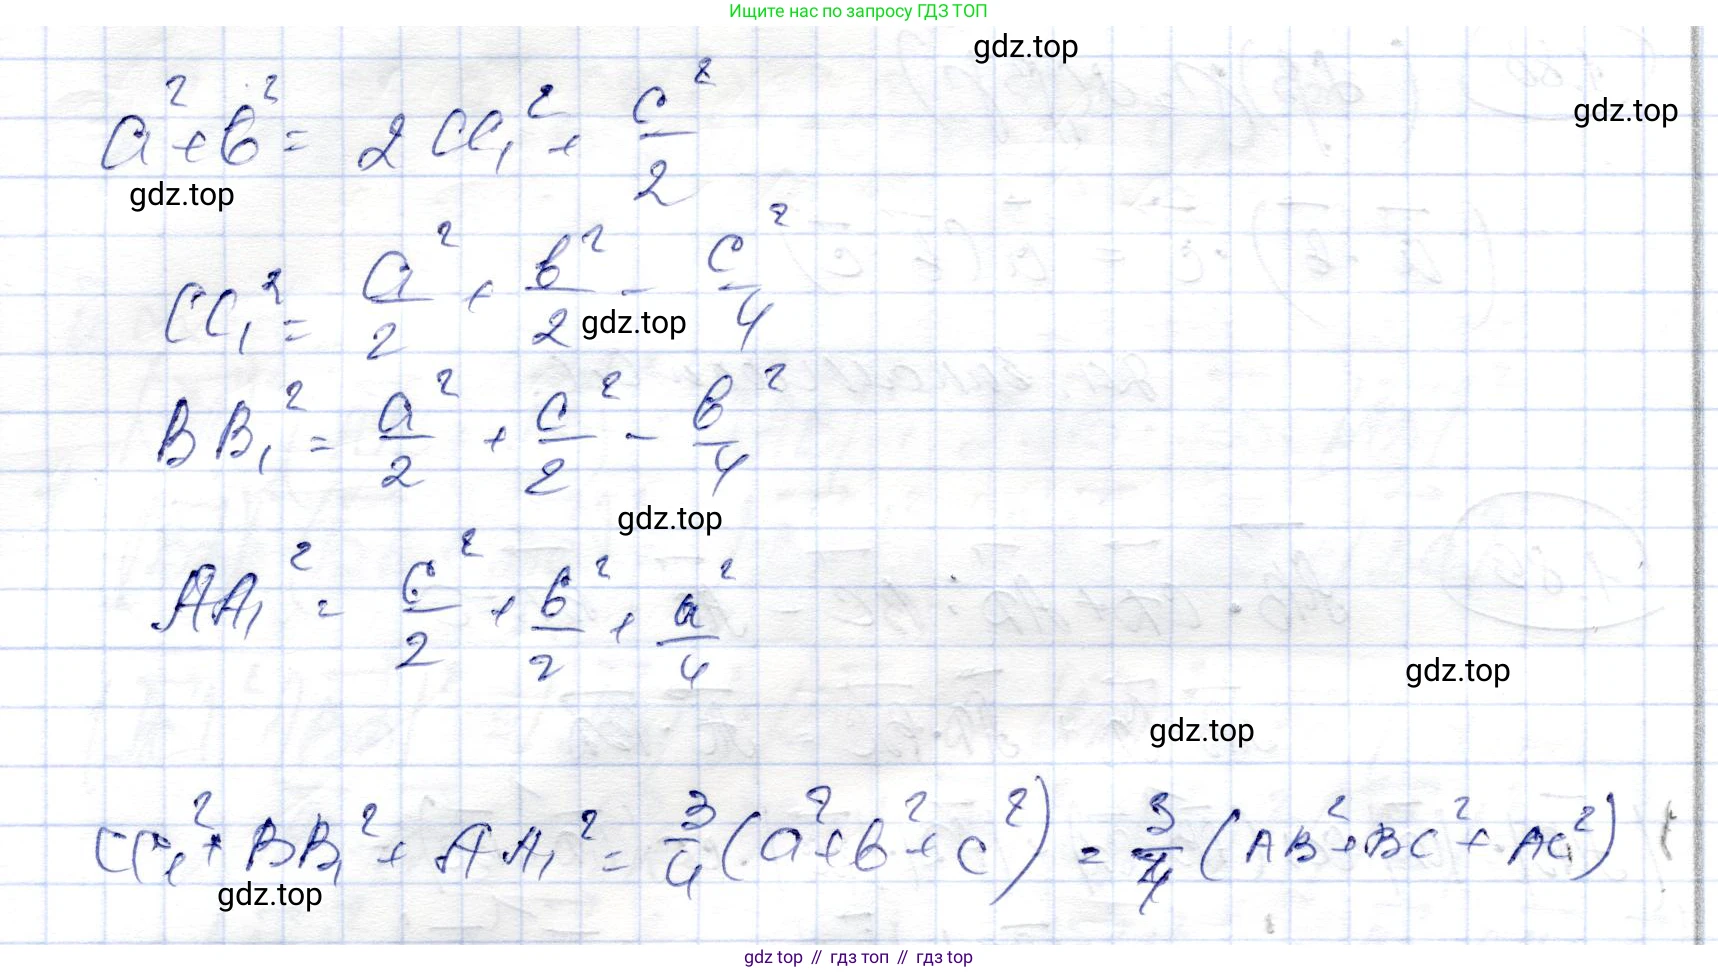 Ищите нас по запросу ГДЗ ТОП
gdz.top
gdz.top
a² + b² = 2CC₁² + c²/2
gdz.top
CC₁² = a²/2 + b²/2 - c²/4
gdz.top
BB₁² = a²/2 + c²/2 - b²/4
gdz.top
AA₁² = c²/2 + b²/2 + a²/4
gdz.top
gdz.top
CC₁² + BB₁² + AA₁² = 3/4 (a² + b² + c²) = 3/4 (AB² + BC² + AC²)
gdz.top
gdz top // гдз топ // гдз top